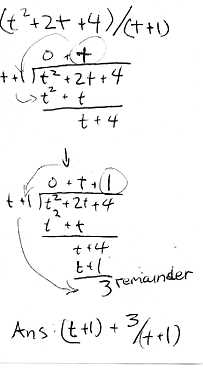 (t²+2t+4)/(t+1)
0 + t
t+1 t²+2t+4
t² + t
t+4
0 + t + 1
t+1 t²+2t+4
t² + t
t+4
t+1
3 remainder
Ans: (t+1) + 3/(t+1)